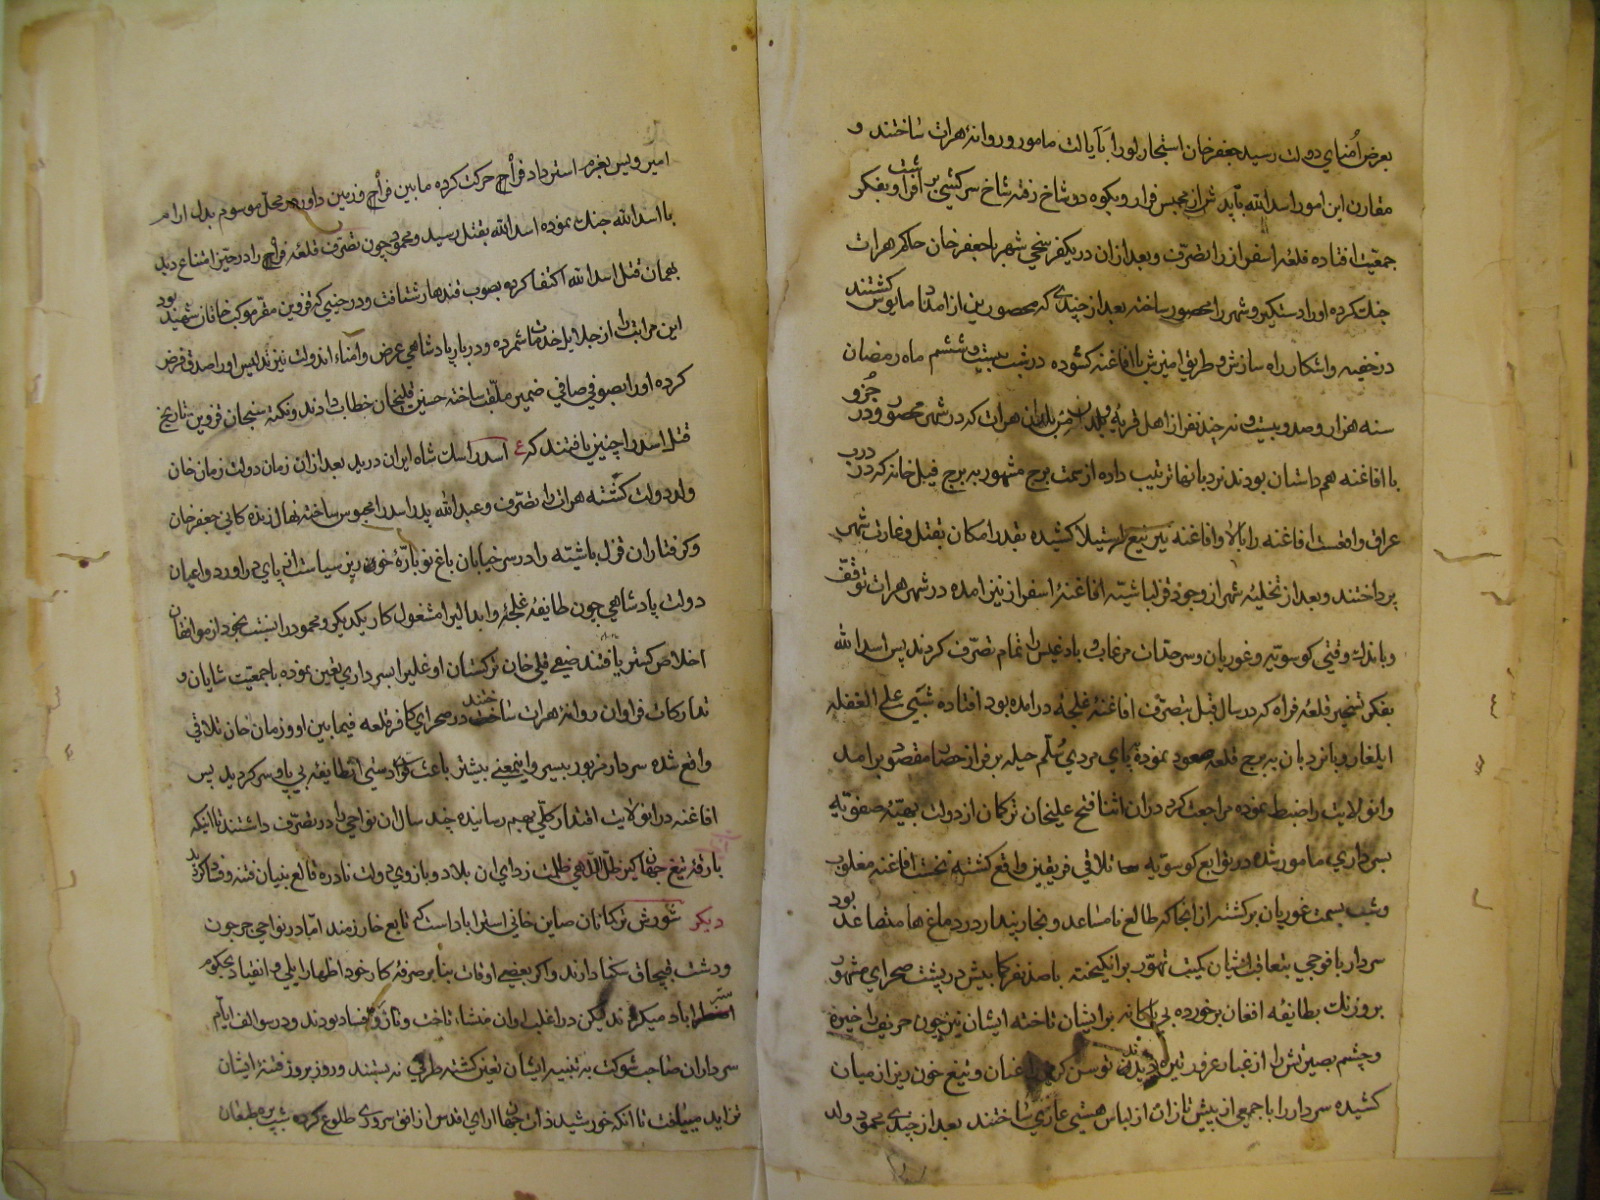 بعرض اُمنای دولت رسید جعفرخان استجارلو را بآیالت مامور و روانهٔ هرات ساختند و
مقارن این امور اسد الله بتأیید از محبس فرار و بکوه دو شاخ رفته شاخ سرکشی بر افراشت و بفکر
جمعیت افتاده قلعهٔ اسفراز را تصرّف و بعد از ان در یکفرسخی شهر با جعفرخان حاکم هرات
جنك کرده او را دستکیر و شهر را محصور ساخته بعد از چندی که محصورین از امداد مایوس کشتند
در خفیه و اشکار راه سازش و طریق امیزش با افاغنه کشوده در شب بیست و ششم ماه رمضان
سنه هزار و صد و بیست و نه چند نفر از اهل قریهٔ هرات که در شهر محصور و در جُزو
با افاغنه همداستان بودند نردبانها ترتیب داده از سمت برج مشهور به برج فیلخانه که در درب
عراق واقعست افاغنه را بالا و افاغنه نیز تیغ استیلا کشیده بقدر امکان بقتل و غارت شهر
پرداختند و بعد از تخلیهٔ شهر از وجود قزلباشیّه افاغنهٔ اسفراز نیز امده در شهر هرات توقف
و باندك وقتی کوسویه و غوریان و سرحدّات مرغاب و بادغیس را تمام تصرّف کردند پس اسد الله
بفکر تسخیر قلعهٔ فراه که در سال قبل بتصرّف افاغنهٔ غلجهٔ در امده بود افتاده شبی علی الغفله
ایلغار و با نردبان به برج قلعه صعود نموده بپای مردی سُلّم حیله بر فراز حصار مقصود برامد
و انولایت را ضبط نموده مراجعت کرد در ان اثنا فتح علیخان ترکمان از دولت بهیّهٔ صفویّه
بسرداری مامور شده در توابع کوسویه تلاقی فریقین واقع کشته نخست افاغنه مغلوب
و شب بسمت غوریان برکشته از انجا که طالع نامساعد و بخار پندار در دماغها متصاعد بود
سردار با فوجی بتعاقب ایشان کمیت تهوّر برانکیخته با صد نفر کمابیش در پشت صحرای مشهور
بروزنك بطایفه افغان برخورده بی باکانه بر ایشان تاخته ایشان نیز چون حریف را خیره
و چشم بصیرتش را از غبار غرور تیره دیدند توسن عنان و تیغ خون ریز از میان
کشیده سردار را با جمعی از پیش تازان از لباس هستی عاری ساختند بعد از چندی محمود ولد
امیر ویس بعزم استرداد فراح حرکت کرده ما بین فراح و زمین داور در محلّ موسوم بدل ارام
با اسد الله جنك نموده اسد الله بقتل رسید و محمود چون تصرّف قلعهٔ فراح را در حیّز امتناع دید
بهمان قتل اسد الله اکتفا کرده بصوب قندهار شتافت و در حینی که قزوین مقرّ موکب خاقان شهید بود
این مراتب را از جلایل خدمات شمرده و دربار پادشاهی عرض و امناء اندولت نیز تدلیس او را صدق فرض
کرده او را بصوفی صافی ضمیر ملقّب ساخته حسین قلیخان خطاب دادند و نکته سنجان قزوین تاریخ
قتل اسد را چنین یافتند که ع اسد را سك شاه ایران درید بعد از ان زمان دولت زمان خان
ولد دولت کشته هرات را تصرّف و عبد الله پدر اسد را محبوس ساخته نهال زنده کانی جعفرخان
و کرفتاران قزلباشیّه را در سر خیابان باغ نو باَرّهٔ خون ریز سیاست از پای در اورد و اعیان
دولت پادشاهی چون طایفهٔ غلجهٔ و ابدالی را مشغول کار یکدیکر و محمود را نسبت بخود از موافقان
اخلاص کستر یافتند صفی قلی خان ترکستان اوغلی را بسرداری تعین نموده با جمعیت شایان و
تدارکات فراوان روانهٔ هرات ساختند در صحرای کافر قلعه فیما بین او و زمان خان تلاقی
واقع شده سردار مزبور بیسر و اینمعنی بیشتر باعث کوادستی انطایفهٔ بی پا و سر کردید پس
افاغنه در انولایت اقتدار کلّی بهم رسانیده چند سال ان نواحی را در تصرّف داشتند تا اینکه
بارقهٔ تیغ جهانکیر ظلّ اللّهی ظلمت زدای ان بلاد و بازوی دولت نادره قالع بنیان فتنه و فساد کردید
دیکر شورش ترکمانان صاین خانی استراباد است که تابع خارزمند امّا در نواحی جرجون
و دشت قبچاق سکنا دارند و اکر بعضی اوقات بنا بر صرفهٔ کار خود اظهار ایلی و انقیاد بحکوم
استراباد میکردند لیکن در اغلب اوان منشاء تاخت و تاز و فساد بودند و در سوالف ایّام
سرداران صاحب شوکت به تنبیه ایشان تعین کشته طرفی نه بستند و روز بروز فتنهٔ ایشان
تزاید مییافت تا انکه خورشید ذات جهان ارای اقدس از افق سروری طلوع کرده شب پره طبعان